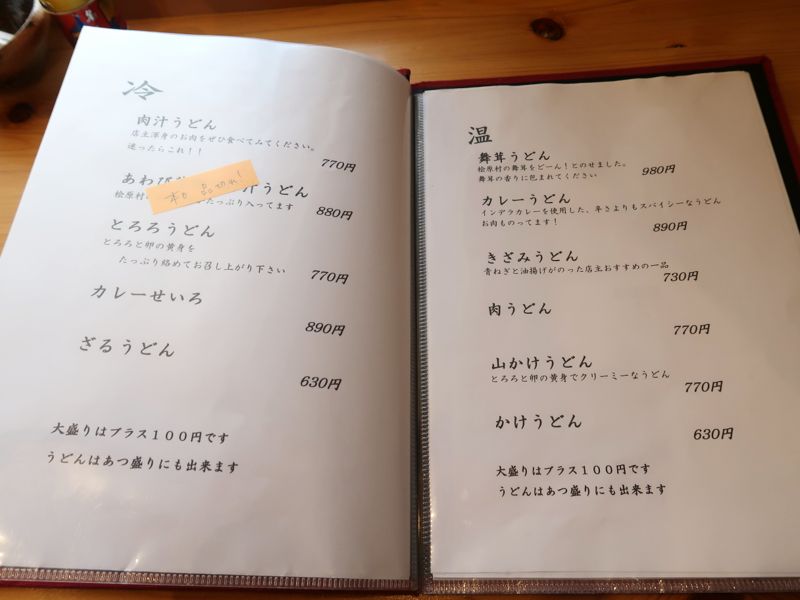 冷
肉汁うどん
店主渾身のお肉をぜひ食べてみてください。
迷ったらこれ！！
770円
あわび 汁うどん
品切れ！
桧原村の たっぷり入ってます
880円
とろろうどん
とろろと卵の黄身を
たっぷり絡めてお召し上がり下さい
770円
カレーせいろ
890円
ざるうどん
630円
大盛りはプラス１００円です
うどんはあつ盛りにも出来ます
温
舞茸うどん
桧原村の舞茸をどーん！とのせました。
舞茸の香りに包まれてください
980円
カレーうどん
インデラカレーを使用した、辛さよりもスパイシーなうどん
お肉ものってます！
890円
きざみうどん
青ねぎと油揚げがのった店主おすすめの一品
730円
肉うどん
770円
山かけうどん
とろろと卵の黄身でクリーミーなうどん
770円
かけうどん
630円
大盛りはプラス１００円です
うどんはあつ盛りにも出来ます